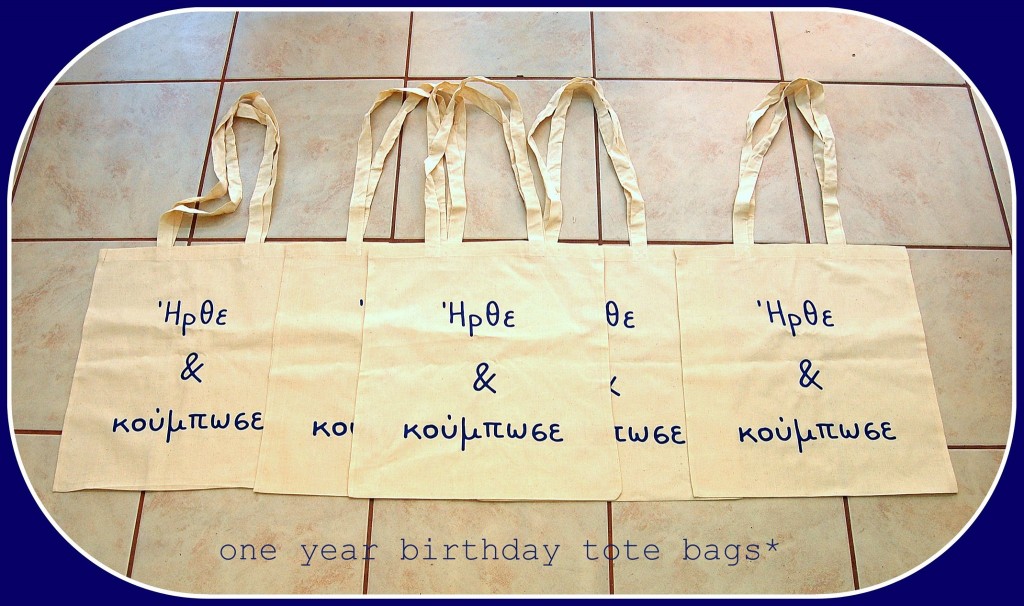 Ήρθε
&
κούμπωσε
Ήρθε
&
κούμπωσε
θε
τωσε
Ήρθε
&
κούμπωσε
κου
one year birthday tote bags*